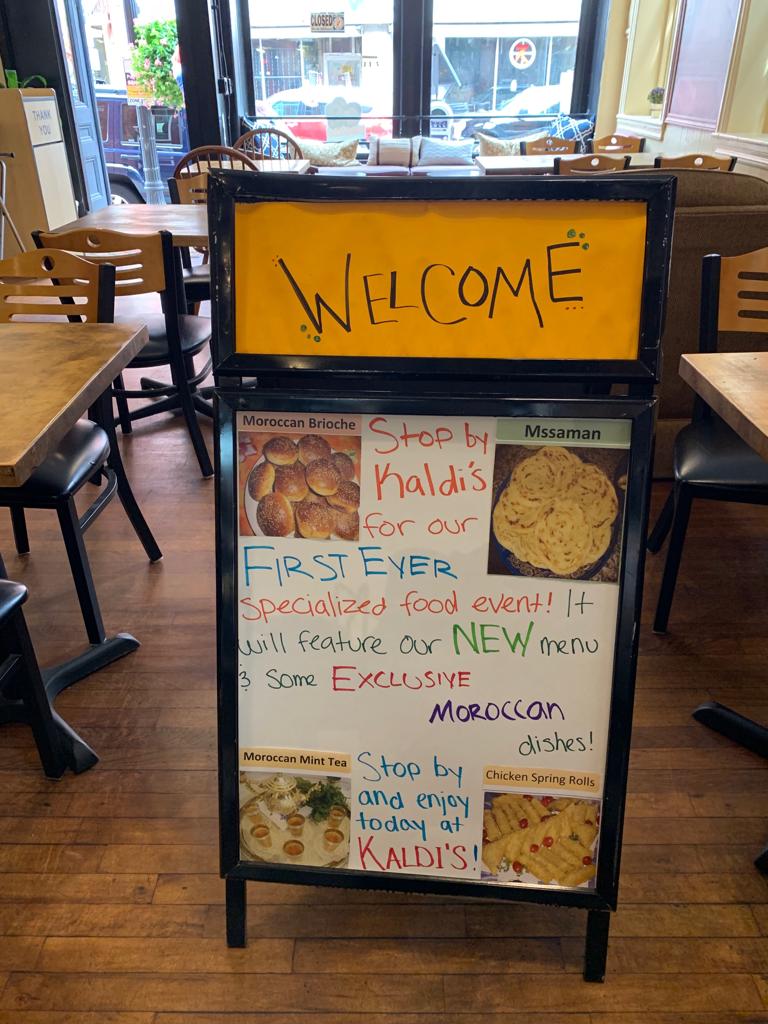 CLOSED
THANK
YOU
WELCOME
Moroccan Brioche
Stop by
Kaldi's
for our
Mssaman
FIRST EVER
specialized food event! It
will feature our NEW menu
& some EXCLUSIVE
MOROCCAN
dishes!
Moroccan Mint Tea
Stop by
and enjoy
today at
KALDI'S!
Chicken Spring Rolls